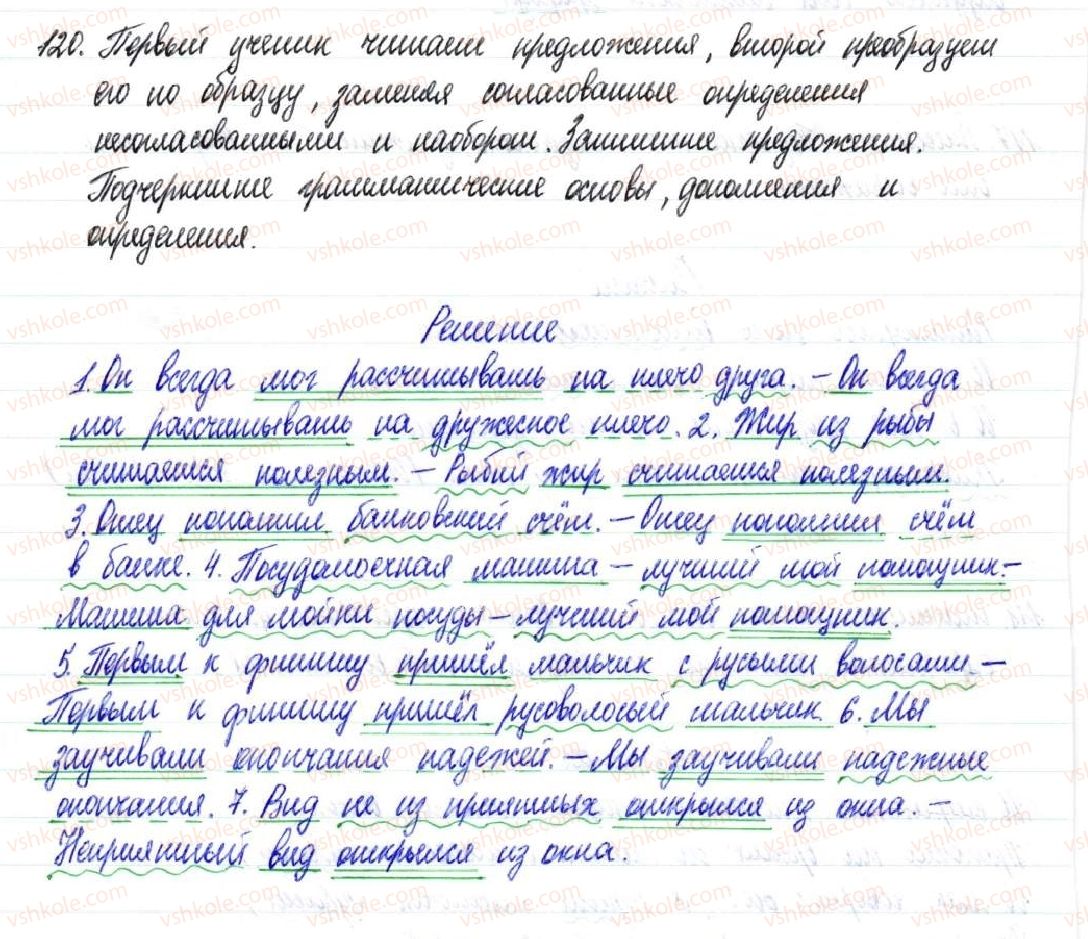 120. Первый ученик читает предложения, второй преобразует
его по образцу, заменяя согласованные определения
несогласованными и наоборот. Запишите предложения.
Подчеркните грамматические основы, дополнения и
определения.
Решение
1. Он всегда мог рассчитывать на плечо друга. – Он всегда
мог рассчитывать на дружеское плечо. 2. Жир из рыбы
считается полезным. – Рыбий жир считается полезным.
3. Отец пополнил банковский счёт. – Отец пополнил счёт
в банке. 4. Посудомоечная машина – лучший мой помощник. –
Машина для мойки посуды – лучший мой помощник.
5. Первым к финишу пришёл мальчик с русыми волосами –
Первым к финишу пришёл русоволосый мальчик 6. Мы
заучивали окончания падежей. – Мы заучивали падежные
окончания. 7. Вид не из приятных открылся из окна. –
Неприятный вид открылся из окна.